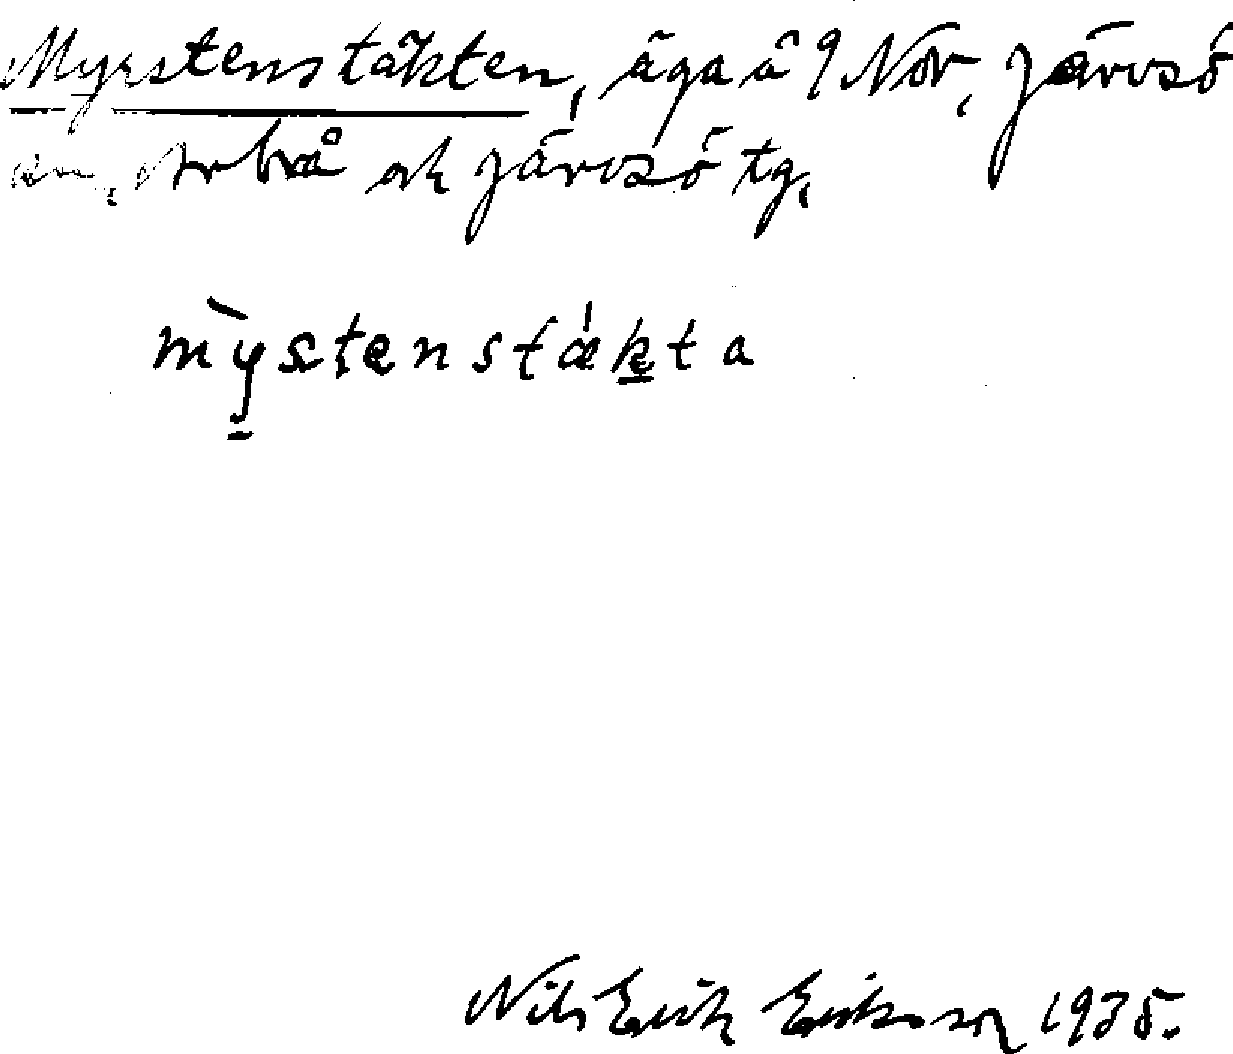 Myrstenstäkten, äga å 9 Nor, Järvsö
sn, Arbrå ok Järvsö tg.
mỳstenstækta
Nils Erik Eriksson 1935.